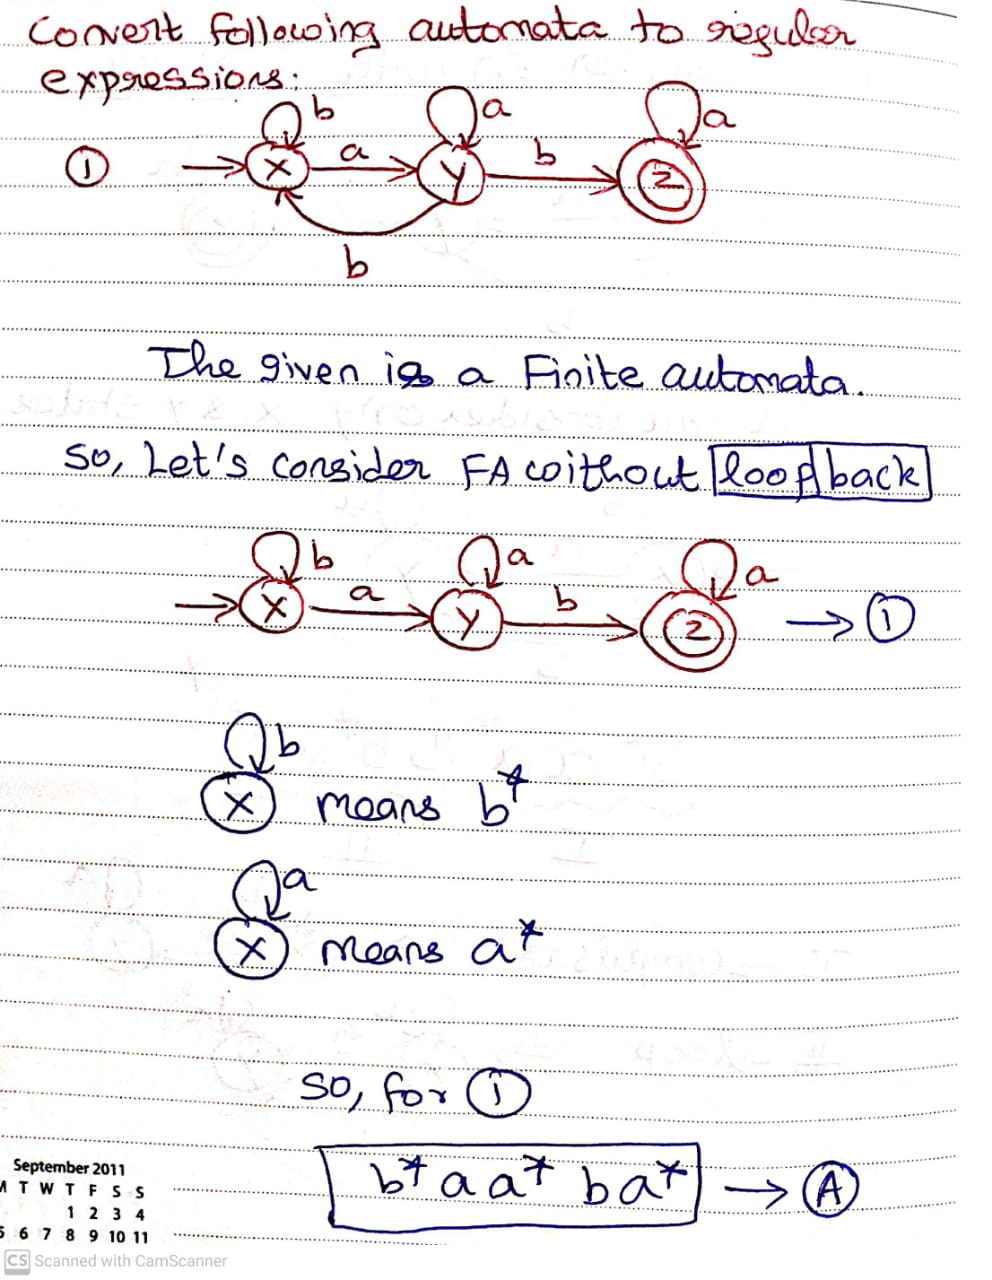 Convert following automata to regular
expressions:
b a a
① X a Y b Z
b
The given is a Finite automata.
So, Let's consider FA without loop back
b a a
X a Y b Z → ①
b
X means b*
a
X means a*
So, for ①
b* a a* b a* → Ⓐ
September 2011
M T W T F S S
1 2 3 4
5 6 7 8 9 10 11
CS Scanned with CamScanner